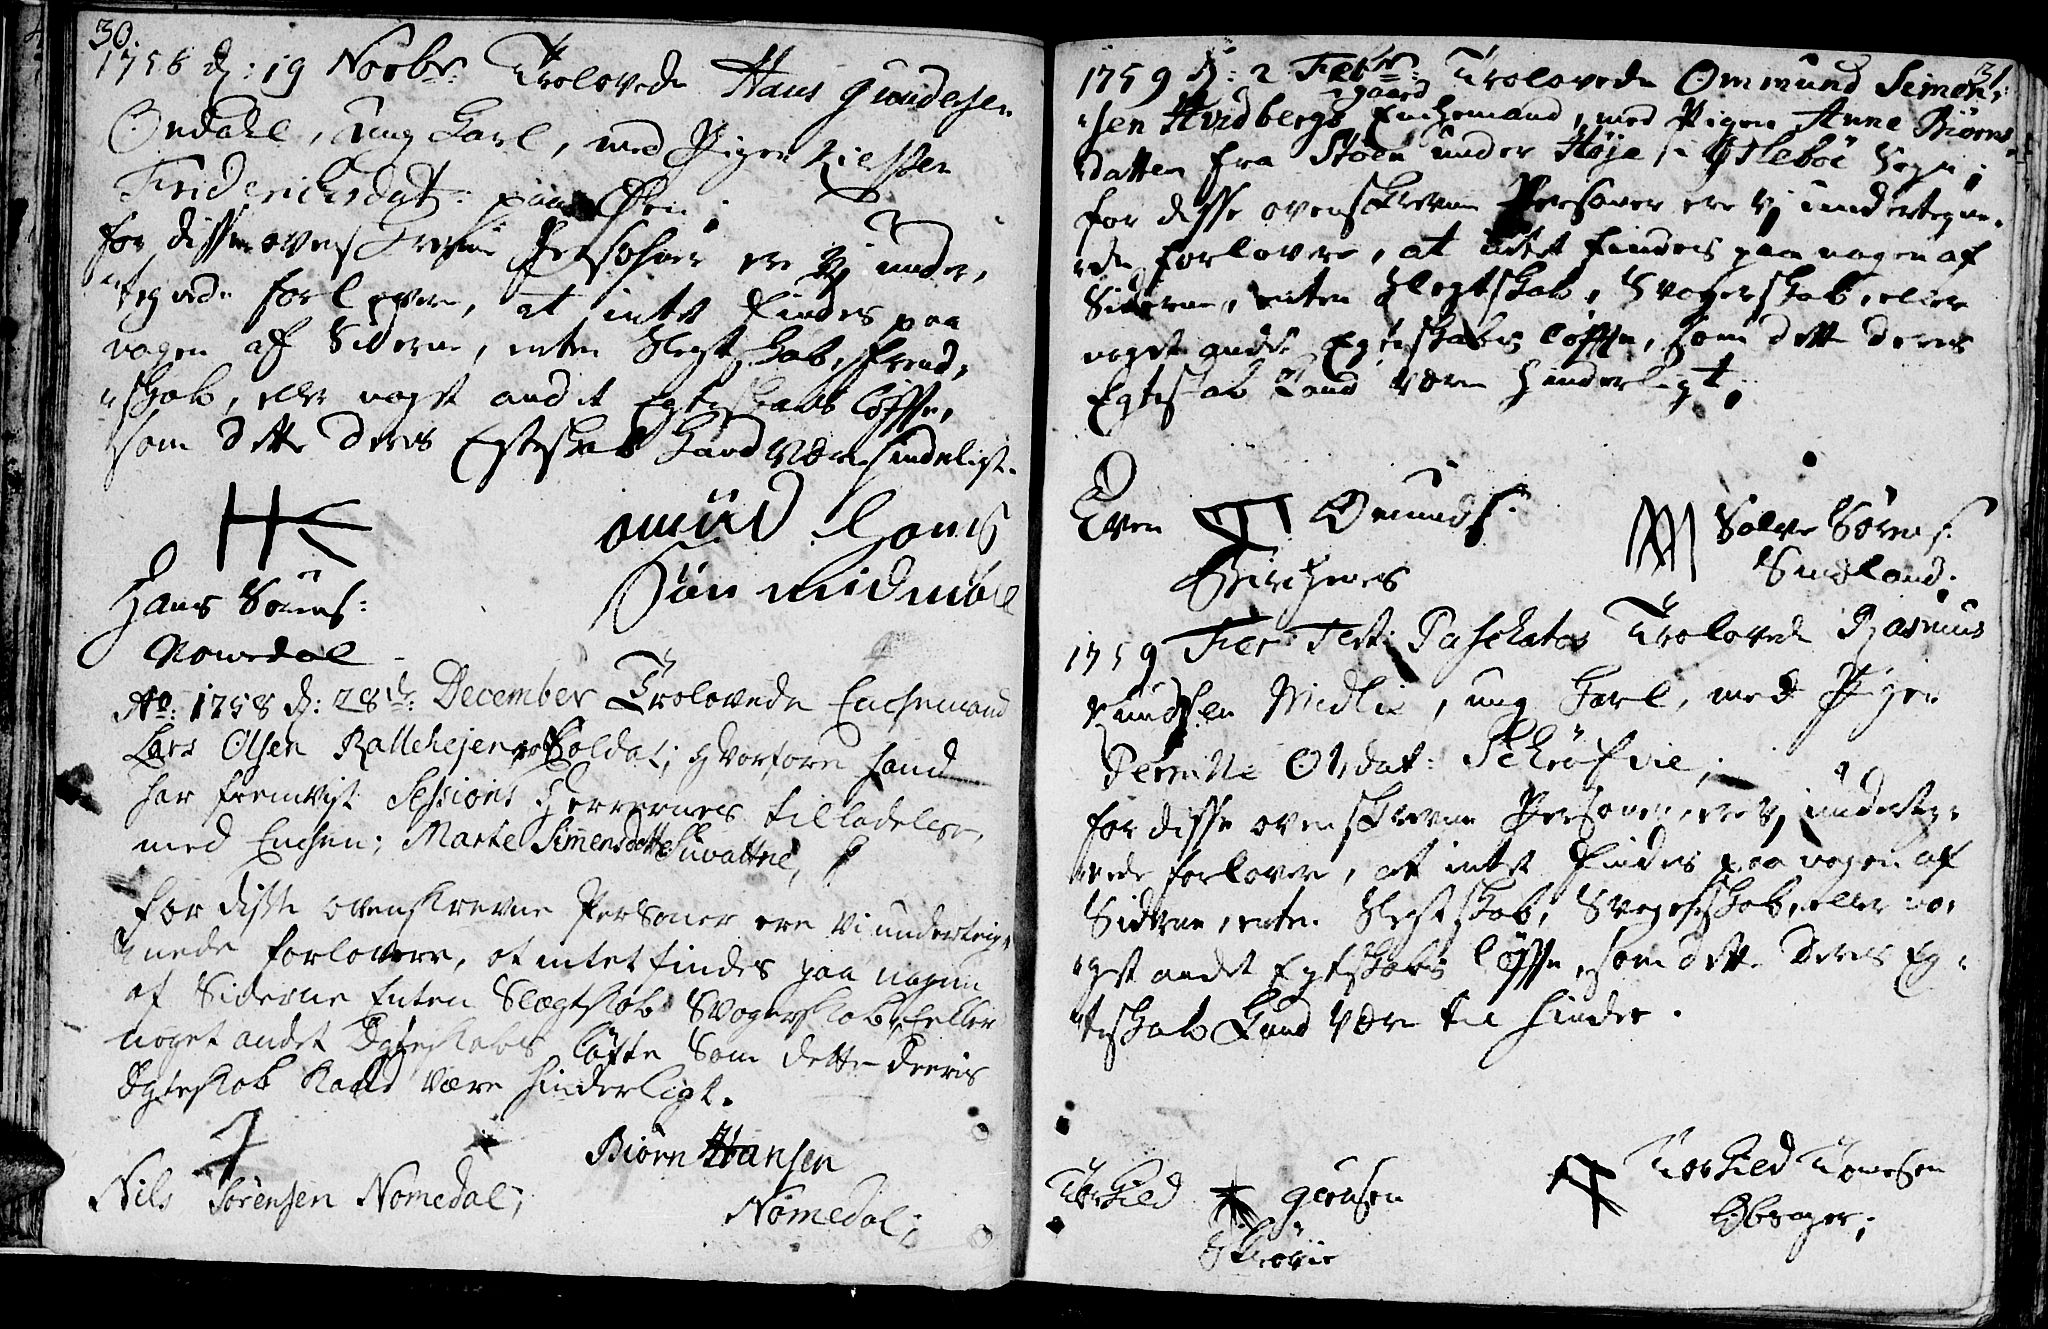 30.
1758 d: 19 Novbr: Trolovede Hans Gundersen
Ondahl, ung Karl, med Pigen Kirsten
Friderichsdat: paa Øen;
for disse ovenskrefne Persohner ere vj under,
tegnede forlovere, at intet findes paa
nogen af Siderne, enten Slegtskab, Frend,
skab, eller noget andet Egteskabs løffte,
som dette deres Egteskab kand være hinderligt.
omünd Hans
Søn midnböe
Hans Sørens:
Nomedal
Ao: 1758 d: 28de: December Trolovede Enchemand
Lars Olsen Kallehejen Soldat; hvorfore hand
har fremvist Sessions Herrernes tilladelse,
med Enchen; Marte Simensdatter Suvattne,
for disse ovenskrevne Personer ere vi underteig,
nede forlovere, at intet findes paa nogen
af Siderne Enten Slægtskab Svogerskab, Eller
noget andet Egteskabs løfte som dette deeris
Egteskab kand være hinderligt.
Nils Sørensen Nomedal;
Biørn Hansen
Nomedal;
31
1759 d: 2 Febr: Trolovede Ommund Simon,
sen Hvidbergs gaard Enchemand, med Pigen Anne Biørns,
datter fra Stoen under Høje i Sogn;
for disse ovenskrevne Personer ere vj undertegne,
de forlovere, at intet findes paa nogen af
Siderne, enten Slegtskab, Svogerskab, eller
noget andet Egteskabs løffte, som dette deres
Egteskab kand være hinderligt;
Even Omunds:
Birchenes
Salve Sørens:
Smeland;
1759 Fer: Fest: Paschatos Trolovede Rasmus
Knudsen Midlie, ung Karl, med Pigen
Pernille Olsdat: Schröfvie;
for disse ovenskrevne Personer ere vj underteg,
nede forlovere, at intet findes paa nogen af
Siderne, enten Slegtskab, Svogerskab, eller no,
get andet Egteskabs løffte, som dette deres Eg,
teskab kand være til hinder.
Torkild Jensen
Skrøvie
Torkild Tomesen